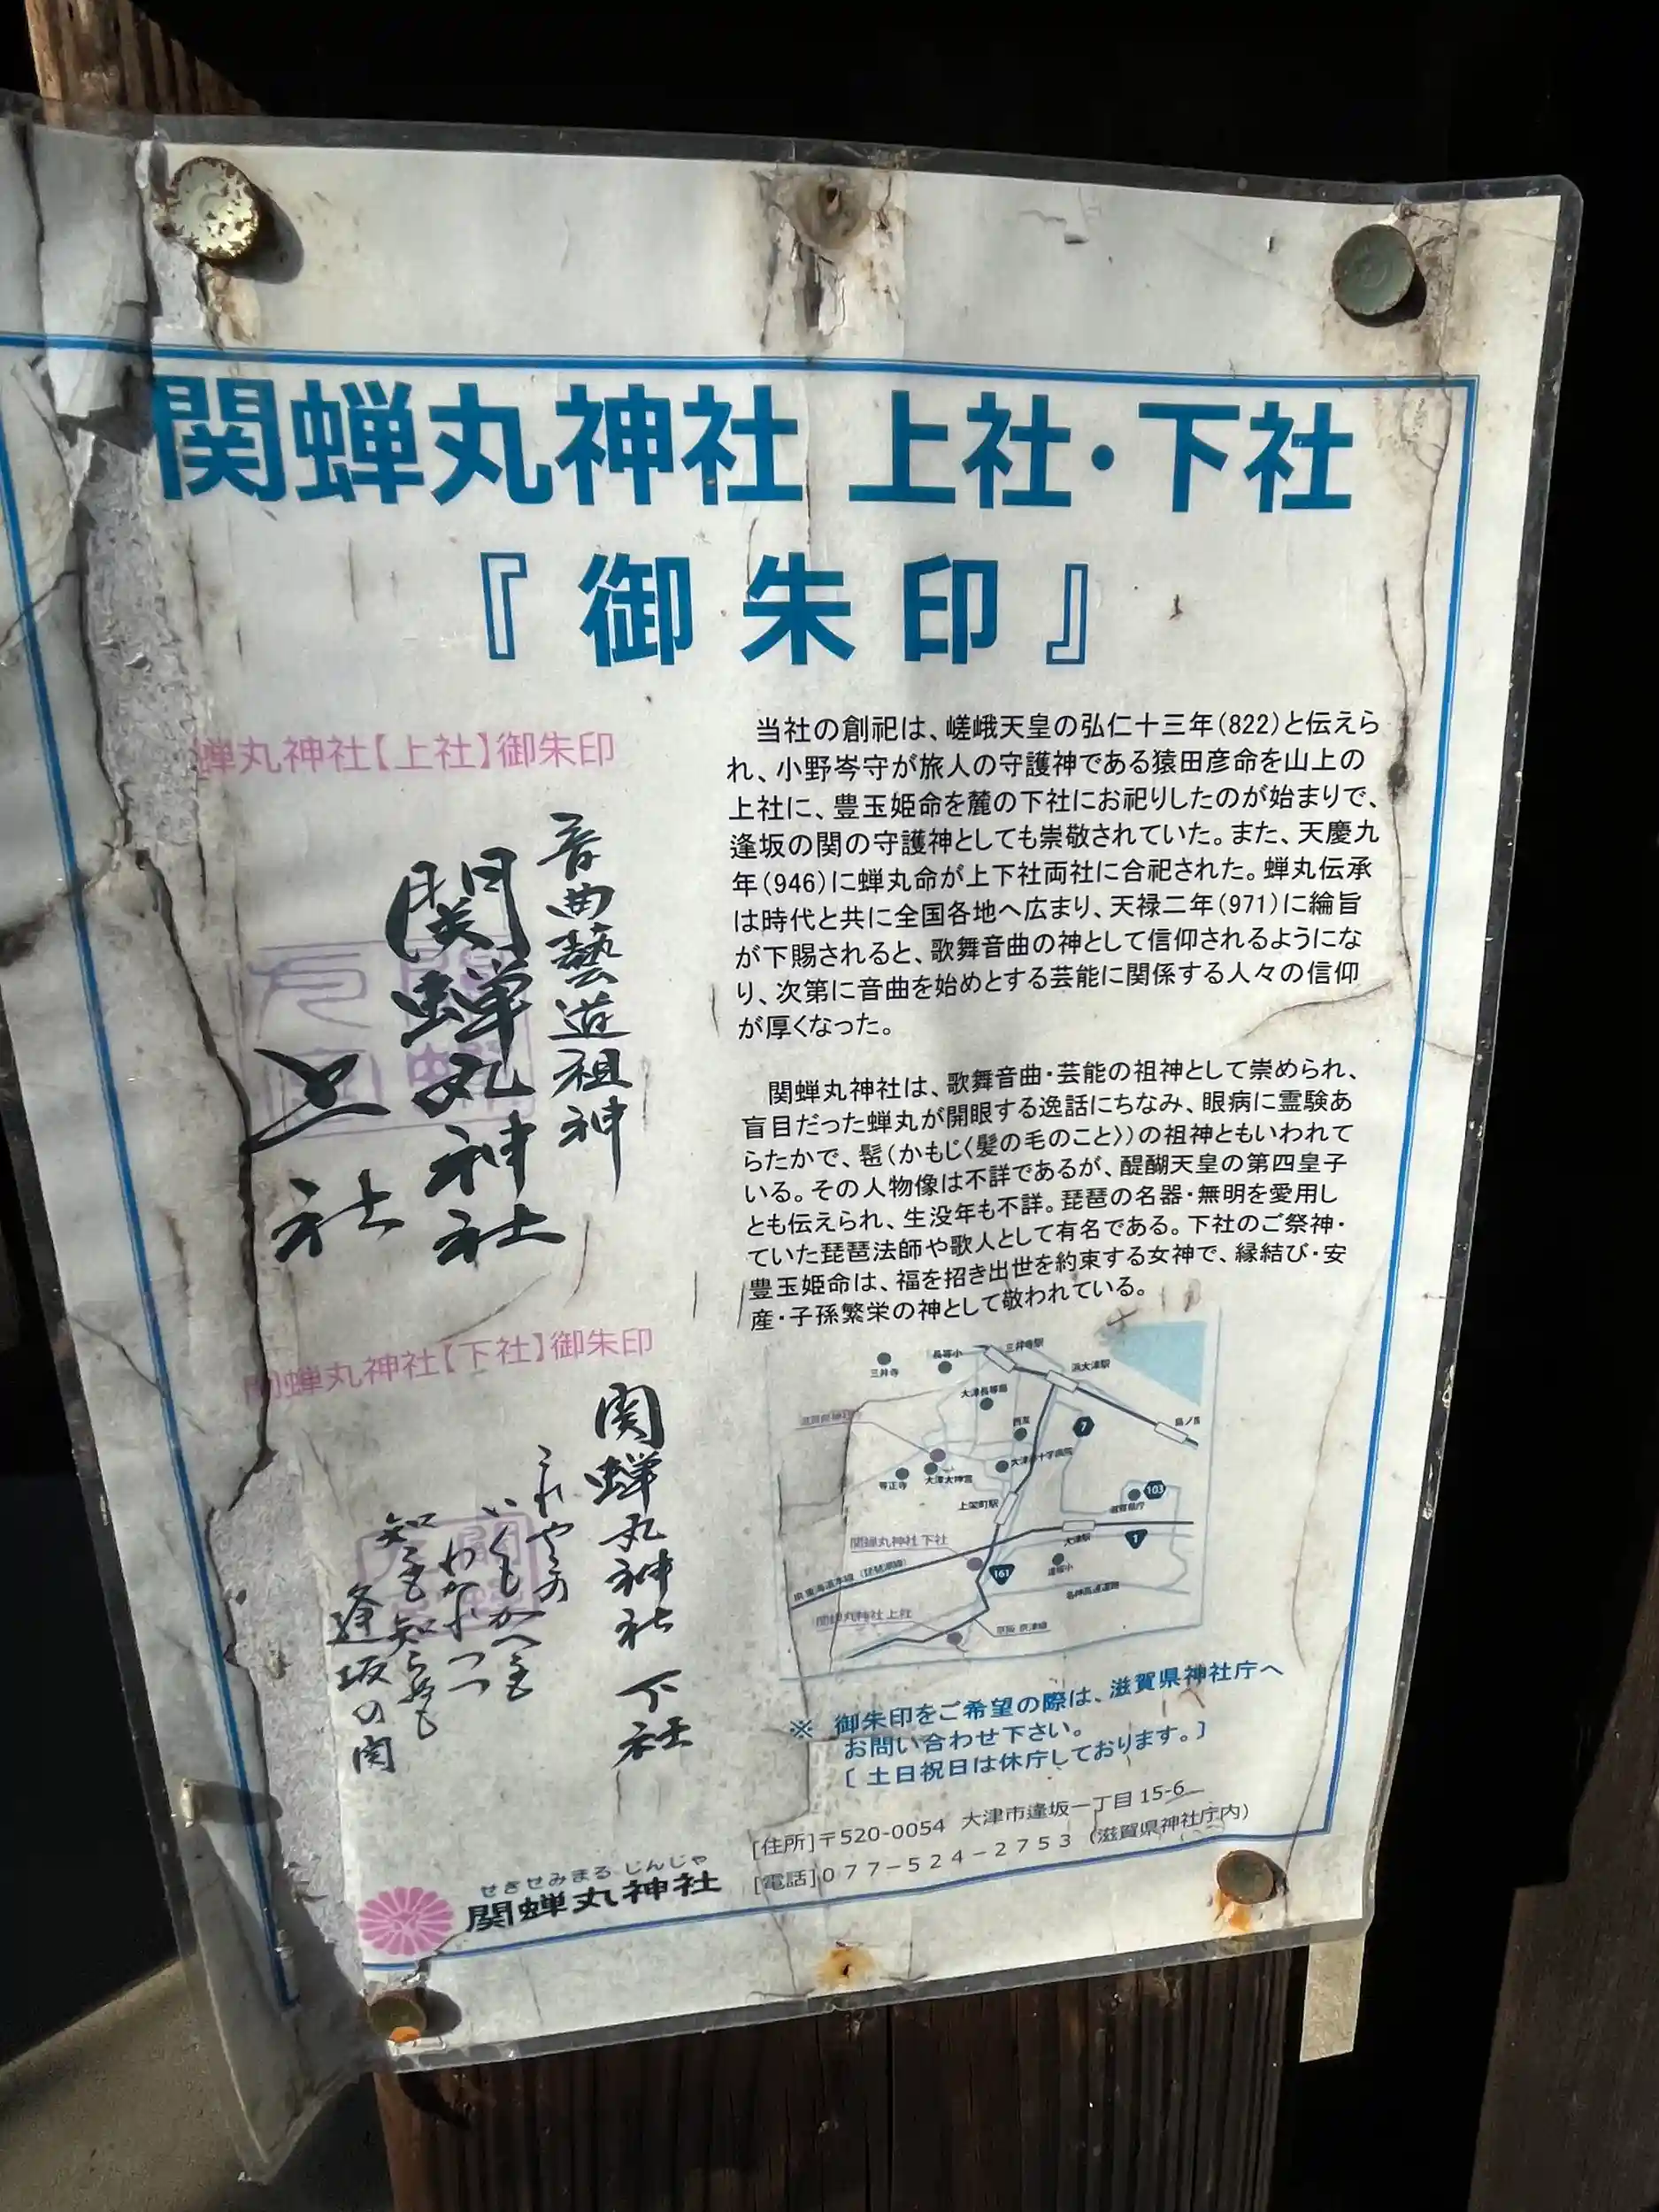 関蝉丸神社 上社・下社
『御朱印』
蝉丸神社【上社】御朱印
音曲藝道祖神
関蝉丸神社
上社
関蝉丸神社【下社】御朱印
関蝉丸神社 下社
これやこの
いくもかへるも
わかれつつ
知るも知らぬも
逢坂の関
当社の創祀は、嵯峨天皇の弘仁十三年(822)と伝えら
れ、小野岑守が旅人の守護神である猿田彦命を山上の
上社に、豊玉姫命を麓の下社にお祀りしたのが始まりで、
逢坂の関の守護神としても崇敬されていた。また、天慶九
年(946)に蝉丸命が上下社両社に合祀された。蝉丸伝承
は時代と共に全国各地へ広まり、天禄二年(971)に綸旨
が下賜されると、歌舞音曲の神として信仰されるようにな
り、次第に音曲を始めとする芸能に関係する人々の信仰
が厚くなった。
関蝉丸神社は、歌舞音曲・芸能の祖神として崇められ、
盲目だった蝉丸が開眼する逸話にちなみ、眼病に霊験あ
らたかで、髢(かもじ〈髪の毛のこと〉)の祖神ともいわれて
いる。その人物像は不詳であるが、醍醐天皇の第四皇子
とも伝えられ、生没年も不詳。琵琶の名器・無明を愛用し
ていた琵琶法師や歌人として有名である。下社のご祭神・
豊玉姫命は、福を招き出世を約束する女神で、縁結び・安
産・子孫繁栄の神として敬われている。
三井寺
長等小
三井寺駅
浜大津駅
西友
7
大津赤十字病院
等正寺
大津大神宮
上栄町駅
滋賀県庁
103
大津駅
1
関蝉丸神社 下社
JR 東海道本線(琵琶湖線)
161
逢坂小
名神高速道路
関蝉丸神社 上社
京阪 京津線
※ 御朱印をご希望の際は、滋賀県神社庁へ
お問い合わせ下さい。
〔 土日祝日は休庁しております。〕
[住所]〒520-0054 大津市逢坂一丁目 15-6
[電話]077-524-2753 (滋賀県神社庁内)
せきせみまる じんじゃ
関蝉丸神社